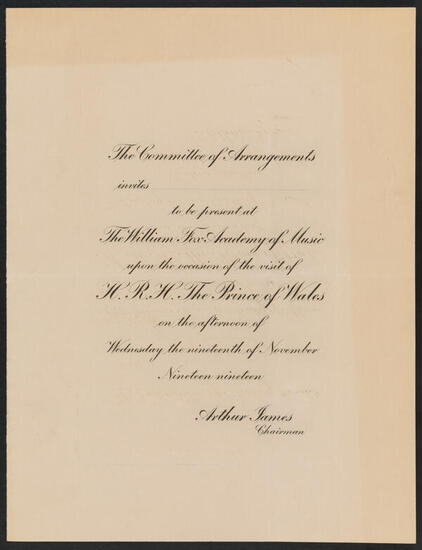 The Committee of Arrangements
invites
to be present at
The William Fox Academy of Music
upon the occasion of the visit of
H. R. H. The Prince of Wales
on the afternoon of
Wednesday the nineteenth of November
Nineteen nineteen
Arthur James
Chairman